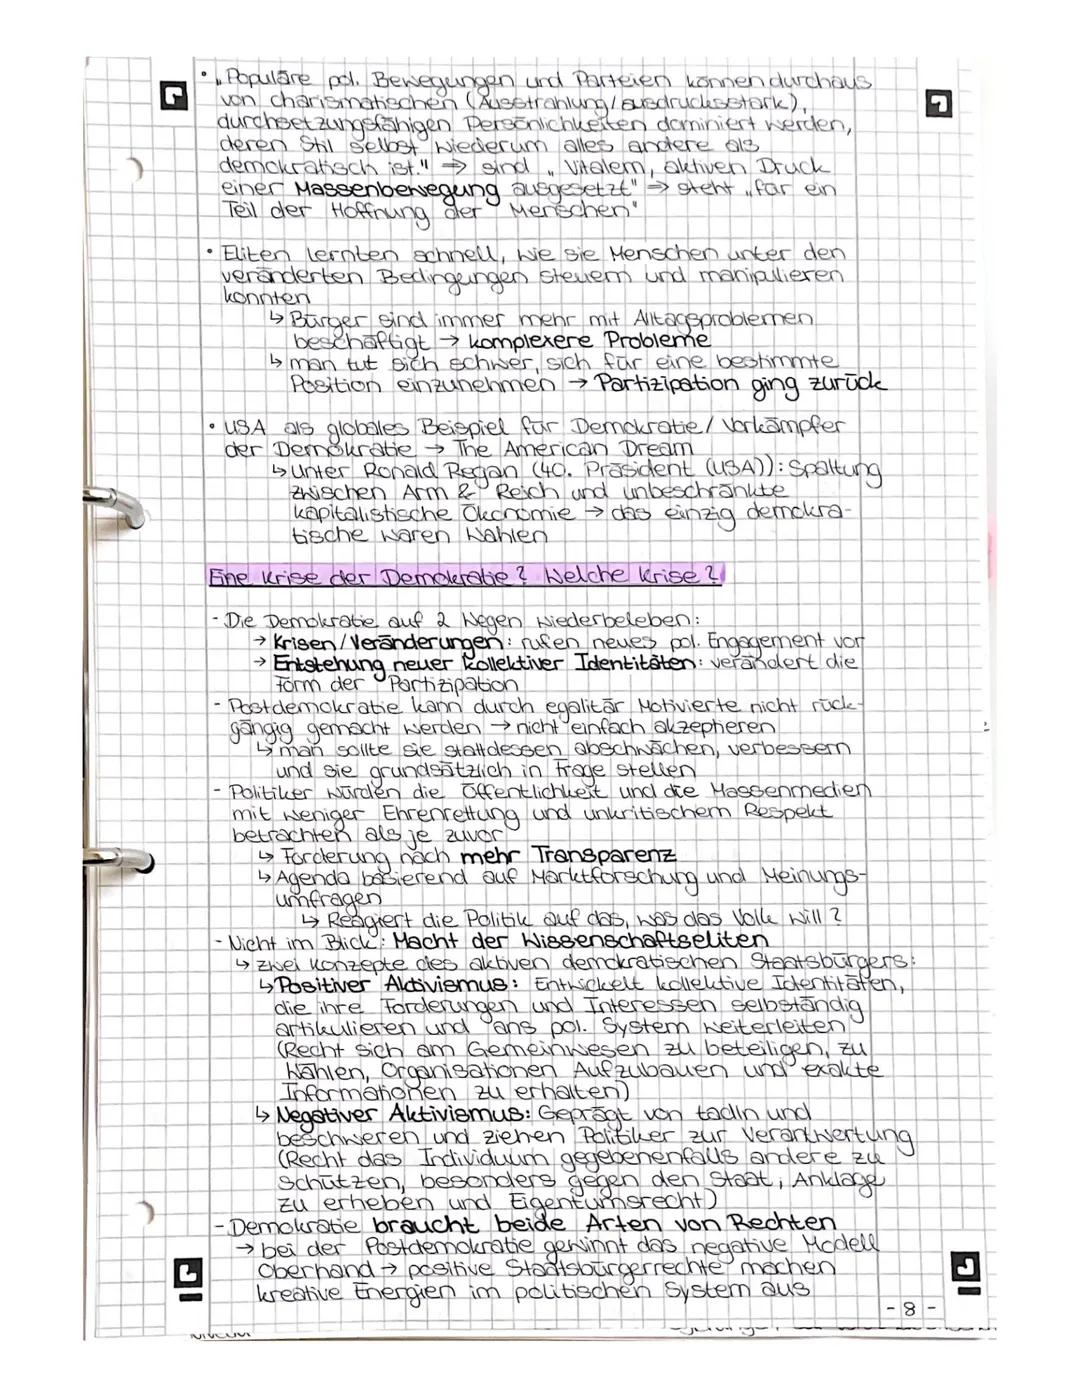 • „Populäre pol. Bewegungen und Parteien können durchaus
von charismatischen (Ausstrahlung/ausdrucksstark),
durchsetzungsfähigen Persönlichkeiten dominiert werden,
deren Stil selbst wiederum alles andere als
demokratisch ist." → sind „Vitalem, aktiven Druck
einer Massenbewegung ausgesetzt" → steht „für ein
Teil der Hoffnung der Menschen"
• Eliten lernten schnell, wie sie Menschen unter den
veränderten Bedingungen steuern und manipulieren
konnten
↳ Bürger sind immer mehr mit Alltagsproblemen
beschäftigt → komplexere Probleme
↳ man tut sich schwer, sich für eine bestimmte
Position einzunehmen → Partizipation ging zurück
• USA als globales Beispiel für Demokratie/Vorkämpfer
der Demokratie → The American Dream
↳ Unter Ronald Regan (40. Präsident (USA)): Spaltung
zwischen Arm & Reich und unbeschränkte
kapitalistische Ökonomie → das einzig demokra-
tische waren Wahlen
Eine Krise der Demokratie? Welche Krise?
- Die Demokratie auf 2 Wegen wiederbeleben:
→ Krisen/Veränderungen: rufen neues pol. Engagement vor
→ Entstehung neuer kollektiver Identitäten: verändert die
Form der Partizipation
- Postdemokratie kann durch egalitär Motivierte nicht rück-
gängig gemacht werden → nicht einfach akzeptieren
↳ man sollte sie stattdessen abschwächen, verbessern
und sie grundsätzlich in Frage stellen
- Politiker würden die Öffentlichkeit und die Massenmedien
mit weniger Ehrenrettung und unkritischem Respekt
betrachten als je zuvor
↳ Forderung nach mehr Transparenz
↳ Agenda basierend auf Marktforschung und Meinungs-
umfragen
↳ Reagiert die Politik auf das, was das Volk will?
- Nicht im Blick: Macht der Wissenschaftseliten
↳ zwei Konzepte des aktiven demokratischen Staatsbürgers:
↳ Positiver Aktivismus: Entwickelt kollektive Identitäten,
die ihre Forderungen und Interessen selbständig
artikulieren und ans pol. System weiterleiten
(Recht sich am Gemeinwesen zu beteiligen, zu
Wählen, Organisationen Aufzubauen und exakte
Informationen zu erhalten)
↳ Negativer Aktivismus: Geprägt von tadln und
beschweren und ziehen Politiker zur Verantwortung
(Recht das Individuum gegebenenfalls andere zu
schützen, besonders gegen den Staat, Anklage
zu erheben und Eigentumsrecht)
- Demokratie braucht beide Arten von Rechten
→ bei der Postdemokratie gewinnt das negative Modell
Oberhand → positive Staatsbürgerrechte machen
kreative Energien im politischen System aus
- 8 -